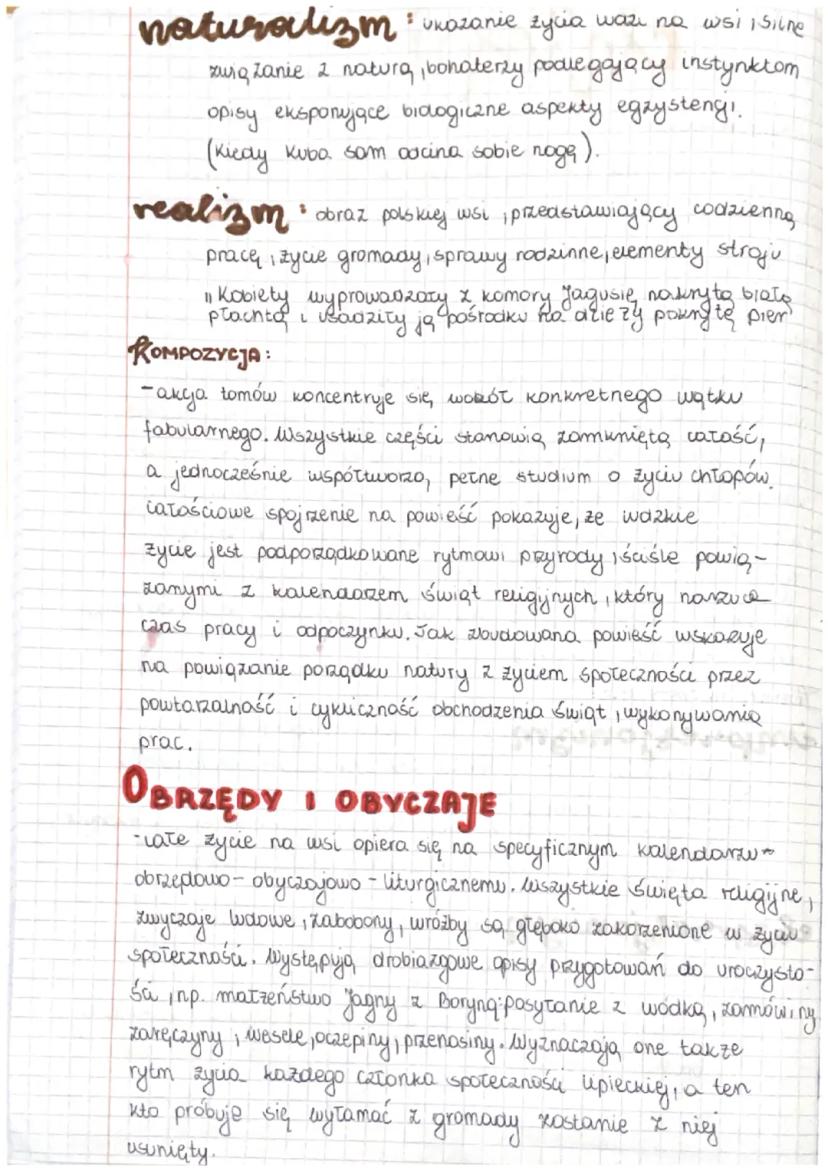 naturalizm: ukazanie życia ludzi na wsi i silne
związanie z naturą, bohaterzy podlegający instynktom
opisy eksponujące biologiczne aspekty egzystencji.
(kiedy Kuba sam odcina sobie nogę).
realizm: obraz polskiej wsi, przedstawiający codzienną
pracę, życie gromady, sprawy rodzinne, elementy stroju
"Kobiety wyprowadzały z komory Jagusię nakrytą białą
płachtą i usadziły ją pośrodku na dzieży pokrytej pierz
KOMPOZYCJA:
-akcja tomów koncentruje się wokół konkretnego wątku
fabularnego. Wszystkie części stanowią zamkniętą całość,
a jednocześnie współtworzą pełne studium o życiu chłopów.
całościowe spojrzenie na powieść pokazuje, że ludzkie
życie jest podporządkowane rytmowi przyrody, ściśle powią-
zanymi z kalendarzem świąt religijnych, który narzuca
czas pracy i odpoczynku. Tak zbudowana powieść wskazuje
na powiązanie porządku natury z życiem społeczności przez
powtarzalność i cykliczność obchodzenia świąt, wykonywania
prac.
OBRZĘDY I OBYCZAJE
-całe życie na wsi opiera się na specyficznym kalendarzu-
obrzędowo-obyczajowo-liturgicznemu. Wszystkie święta religijne,
zwyczaje ludowe, zabobony, wróżby są głęboko zakorzenione w życiu
społeczności. Występują drobiazgowe opisy przygotowań do uroczysto-
ści, np. małżeństwo Jagny z Boryną: posyłanie z wódką, zamówiny
zaręczyny, wesele, oczepiny, przenosiny. Wyznaczają one także
rytm życia każdego członka społeczności lipeckiej, a ten
kto próbuje się wyłamać z gromady zostanie z niej
usunięty.